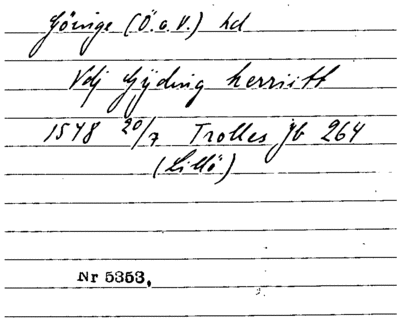 Göinge (Ö. o. V.) hd
Vdj Gyding herrsitt
1578 20/7 Trolles Jb 264
(Lillö)
Nr 5353.